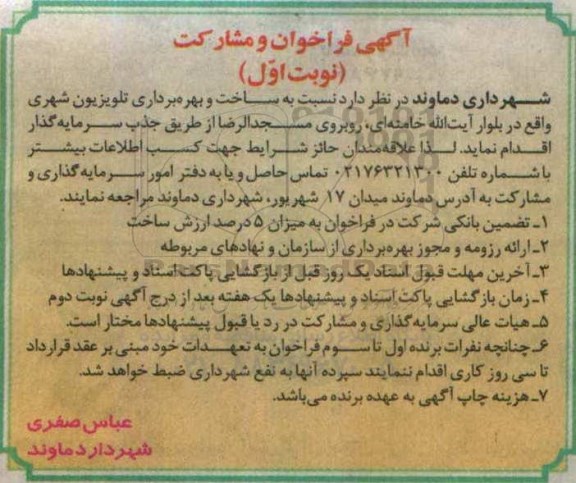 آگهی فراخوان و مشارکت
(نوبت اوّل)
شهرداری دماوند در نظر دارد نسبت به ساخت و بهره‌برداری تلویزیون شهری
واقع در بلوار آیت‌الله خامنه‌ای، روبروی مسجدالرضا از طریق جذب سرمایه‌گذار
اقدام نماید. لذا علاقه‌مندان حائز شرایط جهت کسب اطلاعات بیشتر
با شماره تلفن ۰۲۱۷۶۳۲۱۳۰۰ تماس حاصل و یا به دفتر امور سرمایه‌گذاری و
مشارکت به آدرس دماوند میدان ۱۷ شهریور، شهرداری دماوند مراجعه نمایند.
۱ـ تضمین بانکی شرکت در فراخوان به میزان ۵ درصد ارزش ساخت
۲ـ ارائه رزومه و مجوز بهره‌برداری از سازمان و نهادهای مربوطه
۳ـ آخرین مهلت قبول اسناد یک روز قبل از بازگشایی پاکت اسناد و پیشنهادها
۴ـ زمان بازگشایی پاکت اسناد و پیشنهادها یک هفته بعد از درج آگهی نوبت دوم
۵ـ هیات عالی سرمایه‌گذاری و مشارکت در رد یا قبول پیشنهادها مختار است.
۶ـ چنانچه نفرات برنده اول تا سوم فراخوان به تعهدات خود مبنی بر عقد قرارداد
تا سی روز کاری اقدام ننمایند سپرده آنها به نفع شهرداری ضبط خواهد شد.
۷ـ هزینه چاپ آگهی به عهده برنده می‌باشد.
عباس صفری
شهردار دماوند